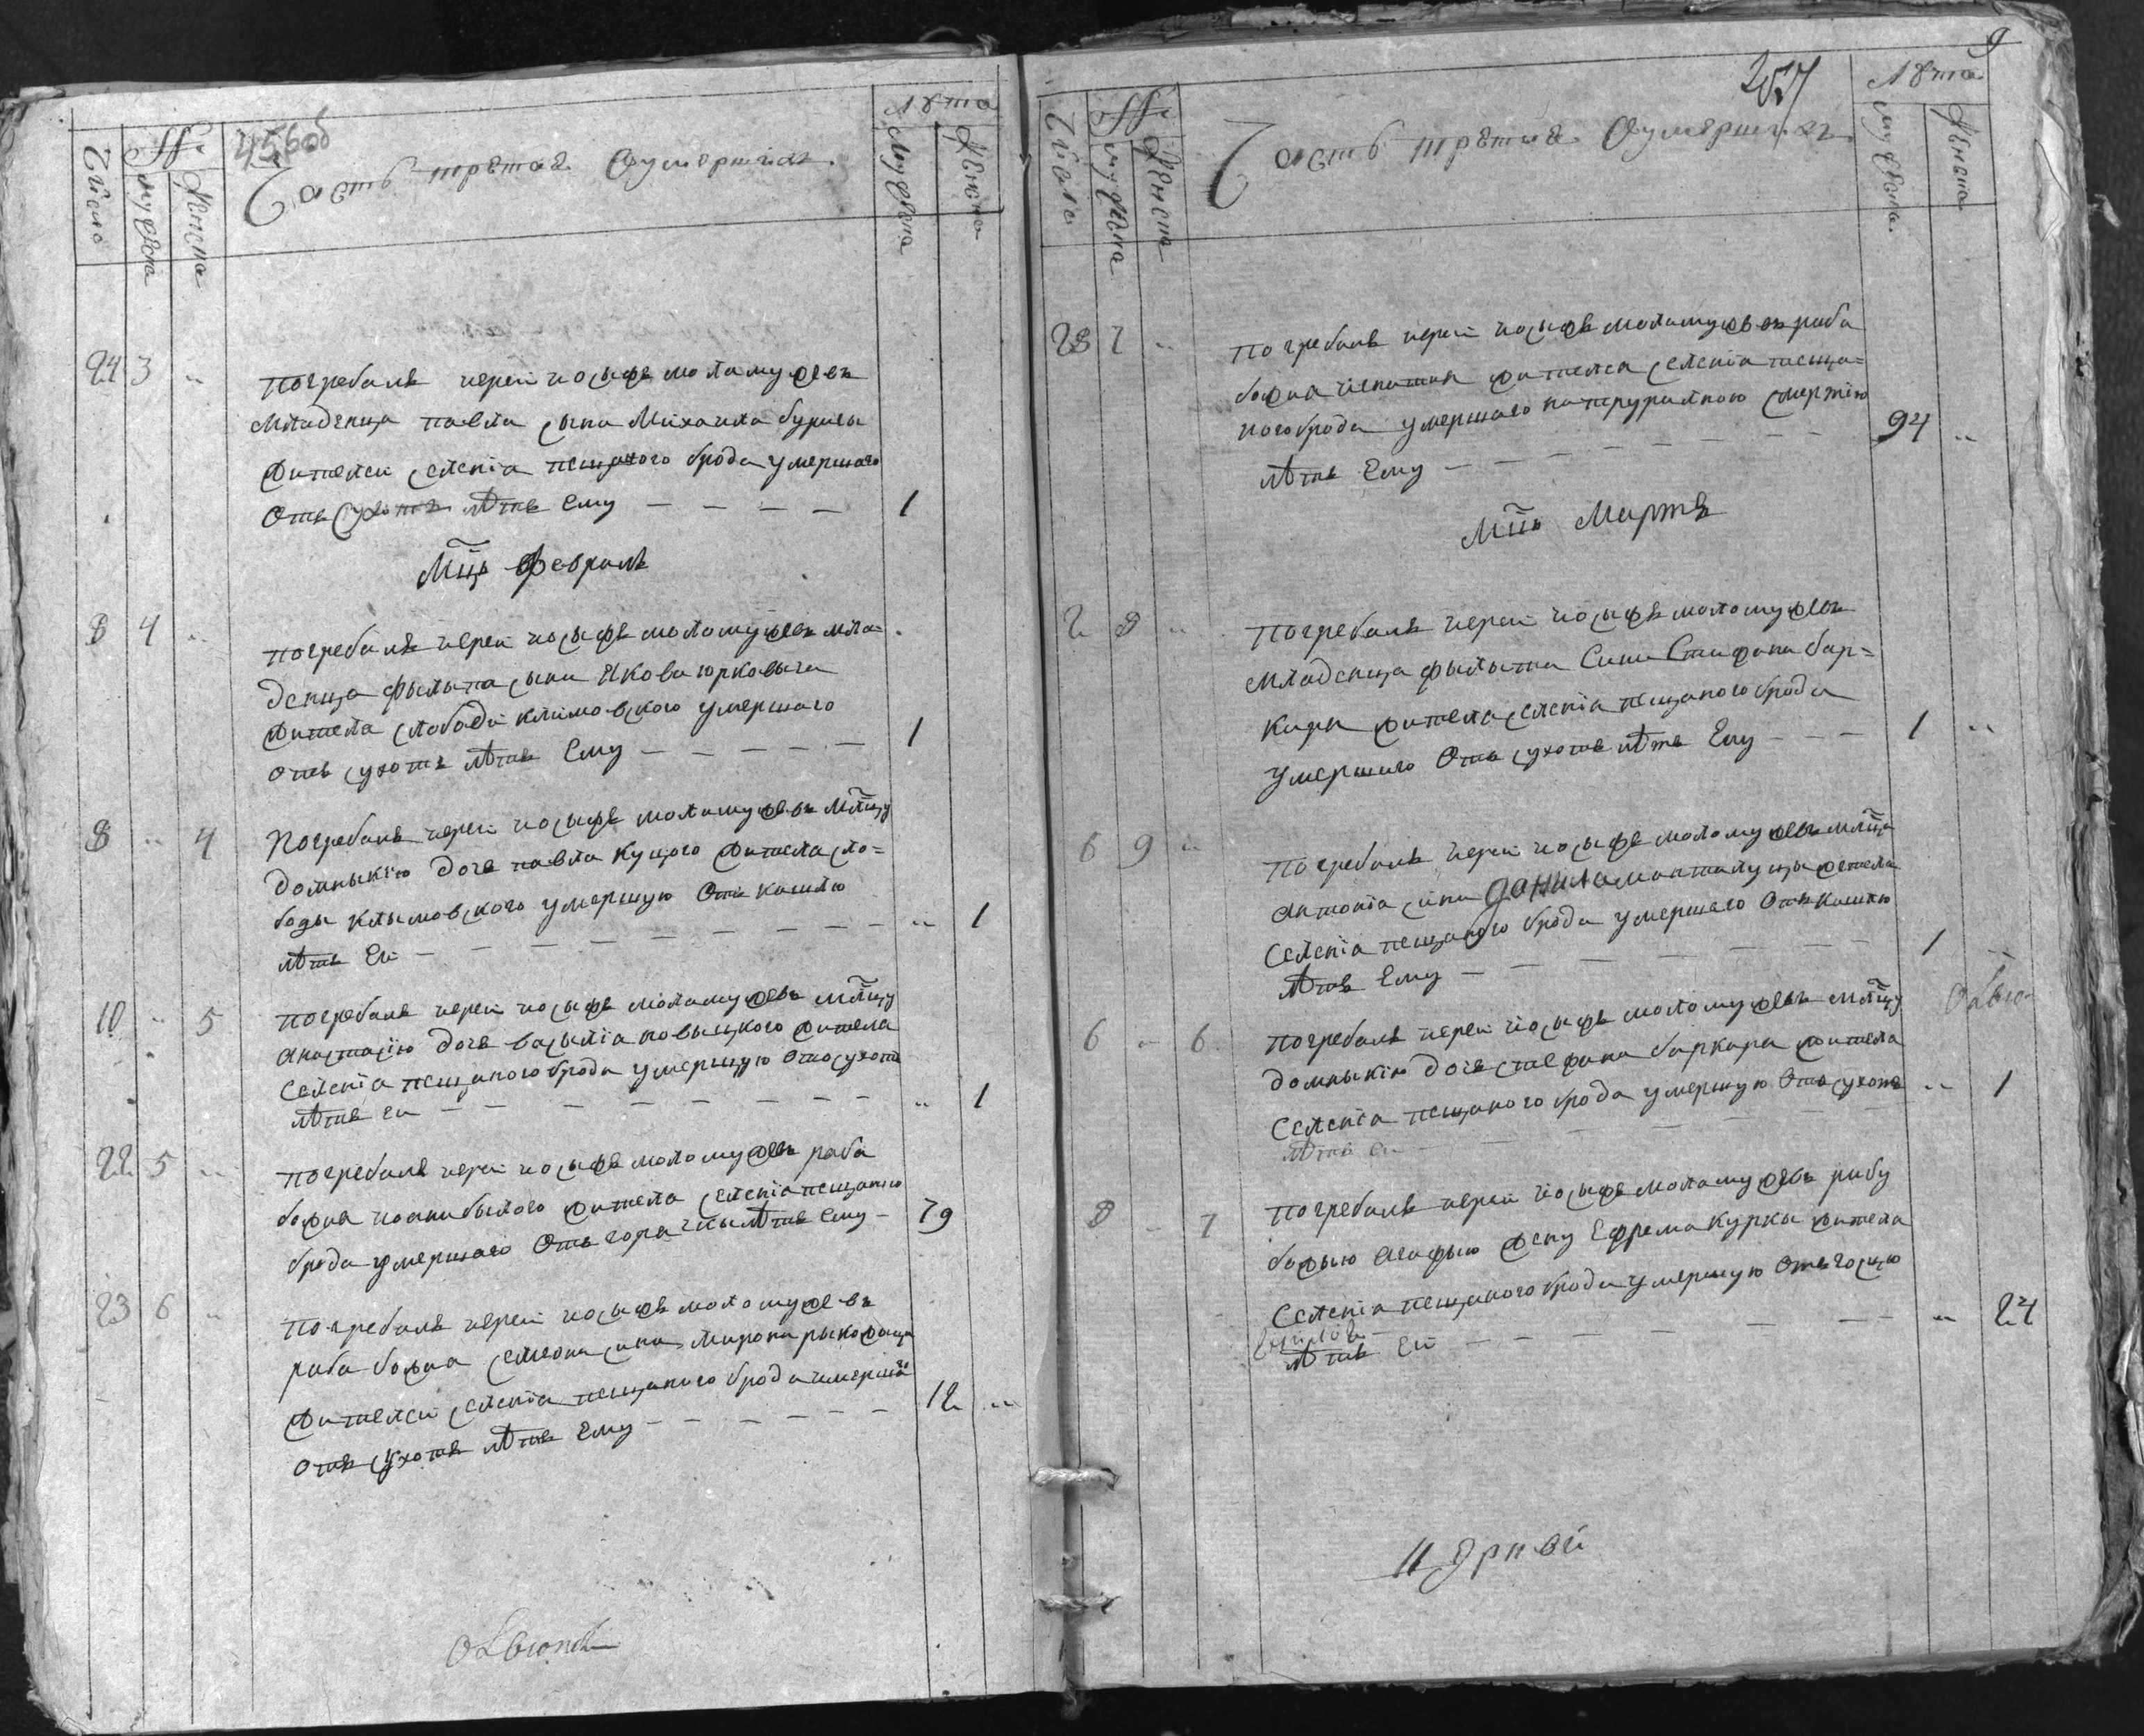 456об
Число
№
мужеска
женска
Часть третая Оумершихъ.
Лѣта
мужеска
женска
24 3 „ Погребалъ иерей иосыфъ маламужевъ
младенца павла сына Михаила
жителей селенїя пещаного брода умершаго
отъ сухотъ лѣтъ ему — — — — 1
Мць Февраль
8 4 „ погребалъ иерей иосыфъ маламужевъ мла=
денца фылыпа сына Якова юрковыча
жителя слободи климовского умершаго
отъ сухотъ лѣтъ Ему — — — — — 1
8 „ 4 Погребалъ иерей иосыфъ маламужевъ млнцу
домныкїю дочь павла куцого жителя сло=
боды клымовского умершую Отъ кашлю
лѣтъ Ей — — — — — — — — „ 1
10 „ 5 погребалъ иерей иосыфъ маламужевъ млнцу
анастасїю дочь васылїя новыцкого жителя
Селенїя пещаного брода умершую отъ сухотъ
лѣтъ ей — — — — — — — — „ 1
22 5 „ погребалъ иерей иосыфъ маламужевъ раба
божия иоана билого жителя селенїя пещаного
брода умершаго Отъ горячкы лѣтъ ему — 79
23 6 „ погребалъ иерей иосыфъ маламужевъ
раба божия семеона сина мирона
жителей селенїя пещаного брода умерша
отъ сухотъ лѣтъ Ему — — — — — 12 „
9
257
Число
№
мужеска
женска
Часть третая Оумершихъ.
Лѣта
мужеска
женска
28 7 „ погребалъ иерей иосыфъ маламужевъ раба
божия жителя селенїя пеща=
ного брода умершаго натуралною смертїю
лѣтъ Ему — — — — — — — 94 „
Мць Мартъ
2 8 „ погребалъ иерей иосыфъ маламужевъ
младенца фылыпа Сина Стефана бар=
кара жителя селенїя пещаного брода
умершаго Отъ сухотъ лѣтъ Ему — — — 1 „
6 9 „ погребалъ иерей иосыфъ маламужевъ млнца
антонїя сина данила жителя
Селенїя пещаного брода умершаго Отъ кашлю
лѣтъ Ему — — — — — — 1 „
6 „ 6 погребалъ иерей иосыфъ маламужевъ млнцу
домныкїю дочь стефана баркара жителя
Селенїя пещаного брода умершую Отъ сухотъ „ 1
лѣтъ ей — — —
8 „ 7 погребалъ иерей иосыфъ маламужевъ рабу
божыю агафыю жену Ефрема курки жителя
Селенїя пещаного брода умершую
лѣтъ Ей — — — — — — — „ 24